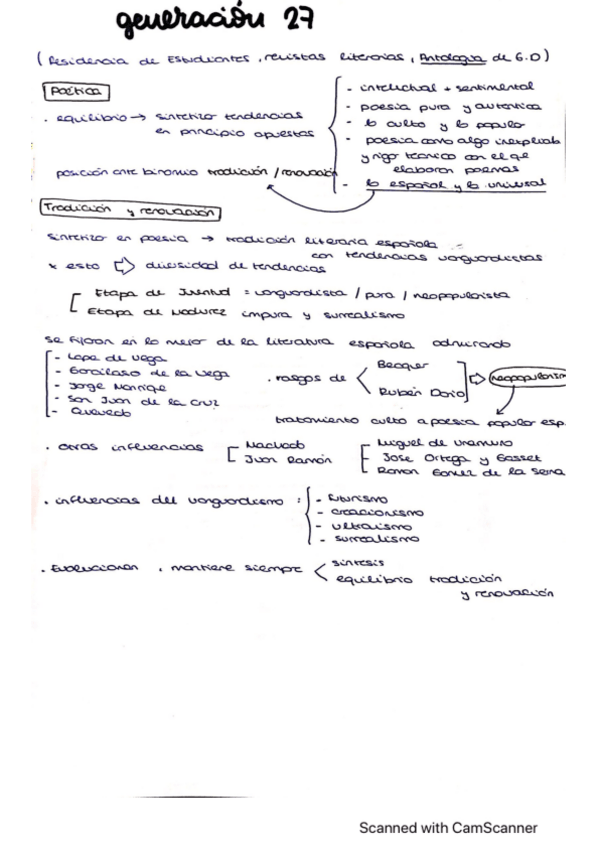 generación 27
(Residencia de Estudiantes, revistas literarias, Antología de G.D)
Poética
- intelectual + sentimental
- poesía pura y auténtica
. equilibrio → sintetiza tendencias
en principio opuestas
- lo culto y lo popular
- poesía como algo inexplicab
y rigo tecnico con el que
elaboran poemas
posición ante binomio tradición / renovación
- lo español y lo universal
Tradición y renovación
sintetiza en poesía → tradición literaria española
con tendencias vanguardistas
x esto ⇨ diversidad de tendencias
Etapa de Juventud = vanguardista / pura / neopopularista
Etapa de Madurez impura y surrealismo
se fijaron en lo mejor de la literatura española admirando
- Lope de Vega
- Garcilaso de la Vega
- Jorge Manrique
- San Juan de la Cruz
- Quevedo
. rasgos de
Becquer
Rubén Darío
⇨ neopopularism
tratamiento culto a poesía popular esp.
. otras influencias
Machado
Juan Ramón
Miguel de Unamuno
Jose Ortega y Gasset
Ramon Gomez de la Serna
. influencias del vanguardismo :
- futurismo
- creacionismo
- ultraismo
- surrealismo
. Evolucionan , mantiene siempre
síntesis
equilibrio tradición
y renovación
Scanned with CamScanner